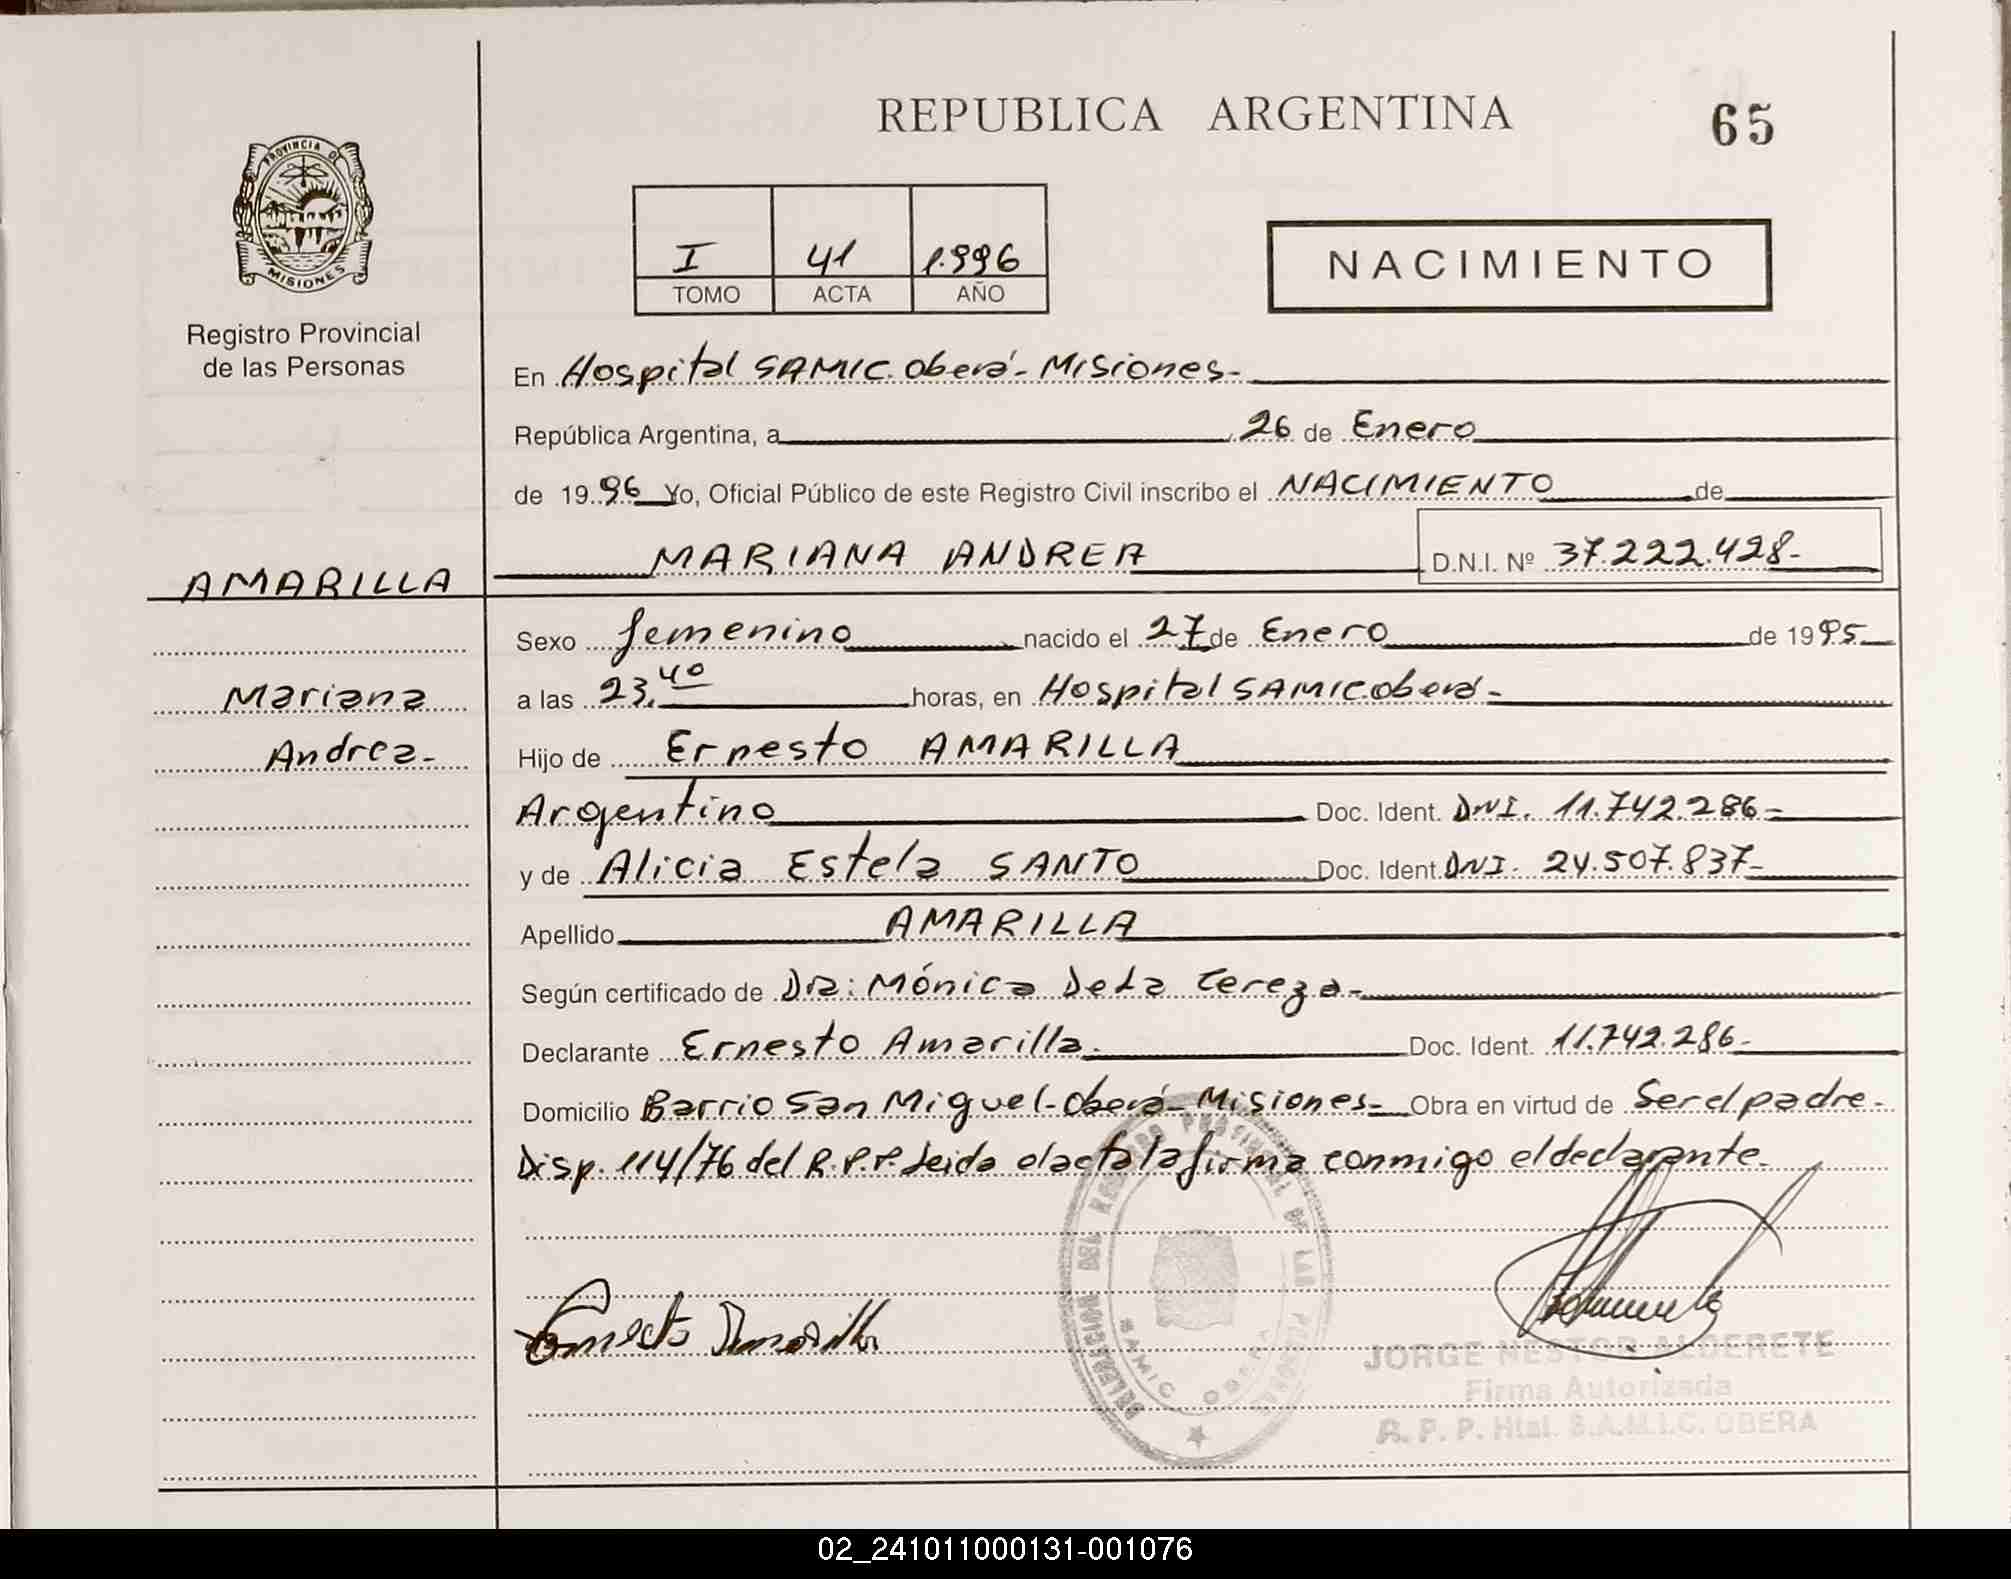 REPUBLICA ARGENTINA
65
PROVINCIA DE
MISIONES
Registro Provincial
de las Personas
I 41 1.996
TOMO ACTA AÑO
NACIMIENTO
En Hospital SAMIC. Oberá - Misiones-
República Argentina, a 26 de Enero
de 19 96 Yo, Oficial Público de este Registro Civil inscribo el NACIMIENTO de
MARIANA ANDREA D.N.I. Nº 37.222.428-
AMARILLA
Mariana
Andrea-
Sexo femenino nacido el 27 de Enero de 19 95
a las 23,40 horas, en Hospital SAMIC Oberá-
Hijo de Ernesto AMARILLA
Argentino Doc. Ident. DNI. 11.742.286-
y de Alicia Estela SANTO Doc. Ident. DNI. 24.507.837-
Apellido AMARILLA
Según certificado de Dra: Mónica De La Cereza-
Declarante Ernesto Amarilla. Doc. Ident. 11.742.286-
Domicilio Barrio San Miguel-Oberá-Misiones- Obra en virtud de Ser el padre-
Disp. 114/76 del R.P.P. Leida el acta la firma conmigo el declarante.
Ernesto Amarilla
DELEGACION DEL REGISTRO PROVINCIAL DE LAS PERSONAS
SAMIC OBERA
JORGE NESTOR ALDERETE
Firma Autorizada
R. P. P. Htal. S.A.M.I.C. OBERA
02_241011000131-001076